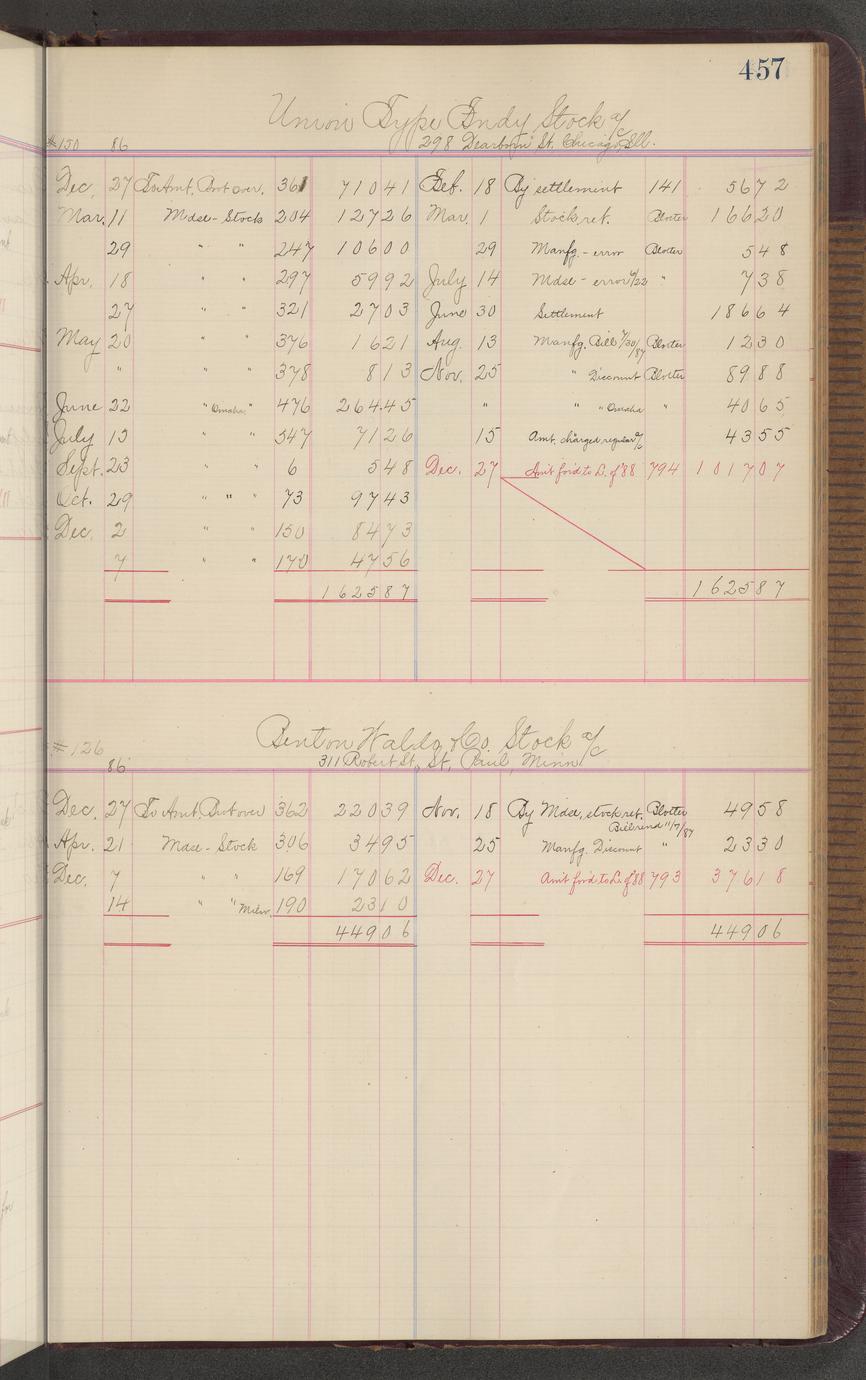 457
Union Type Fndy Stock a/c
#150 86 298 Dearborn St. Chicago, Ill.
Dec. 27 To Amt. Brot over, 361 710 41 Feb. 18 By settlement 141 56 72
Mar. 11 Mdse - Stock 204 127 26 Mar. 1 Stock, ret. Blotter 166 20
29 " " 247 106 00 29 Manfg. - error Blotter 5 48
Apr. 18 " " 297 59 92 July 14 Mdse - error 4/22 " 7 38
27 " " 321 27 03 June 30 Settlement 186 64
May 20 " " 376 16 21 Aug. 13 Manfg. Bill 7/30/87 Blotter 12 30
" " " 378 8 13 Nov. 25 " Discount Blotter 89 88
June 22 " Omaha " 476 264 45 " " " Omaha " 40 65
July 15 " " 547 71 26 15 Amt. charged regular a/c 43 55
Sept. 23 " " 6 5 48 Dec. 27 Am't for'd to L. of '88 794 1017 07
Oct. 29 " " " 73 97 43
Dec. 2 " " 150 84 73
7 " " 170 47 56
1625 87 1625 87
Benton Waldo & Co. Stock a/c
#126 86 311 Robert St., St. Paul, Minn
Dec. 27 To Amt. Brot over 362 220 39 Nov. 18 By Mdse, stock ret. Blotter 49 58
Bill rend 11/7/87
Apr. 21 Mdse - Stock 306 34 95 25 Manfg. Discount " 23 30
Dec. 7 " " 169 170 62 Dec. 27 Am't for'd to L. of '88 793 376 18
14 " " Milw. 190 23 10
449 06 449 06